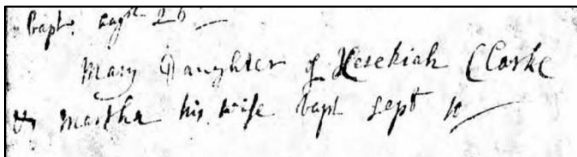 Bapt. augst 26
Mary Daughter of Hesekiah Clarke
& Martha his wife bapt sept 10